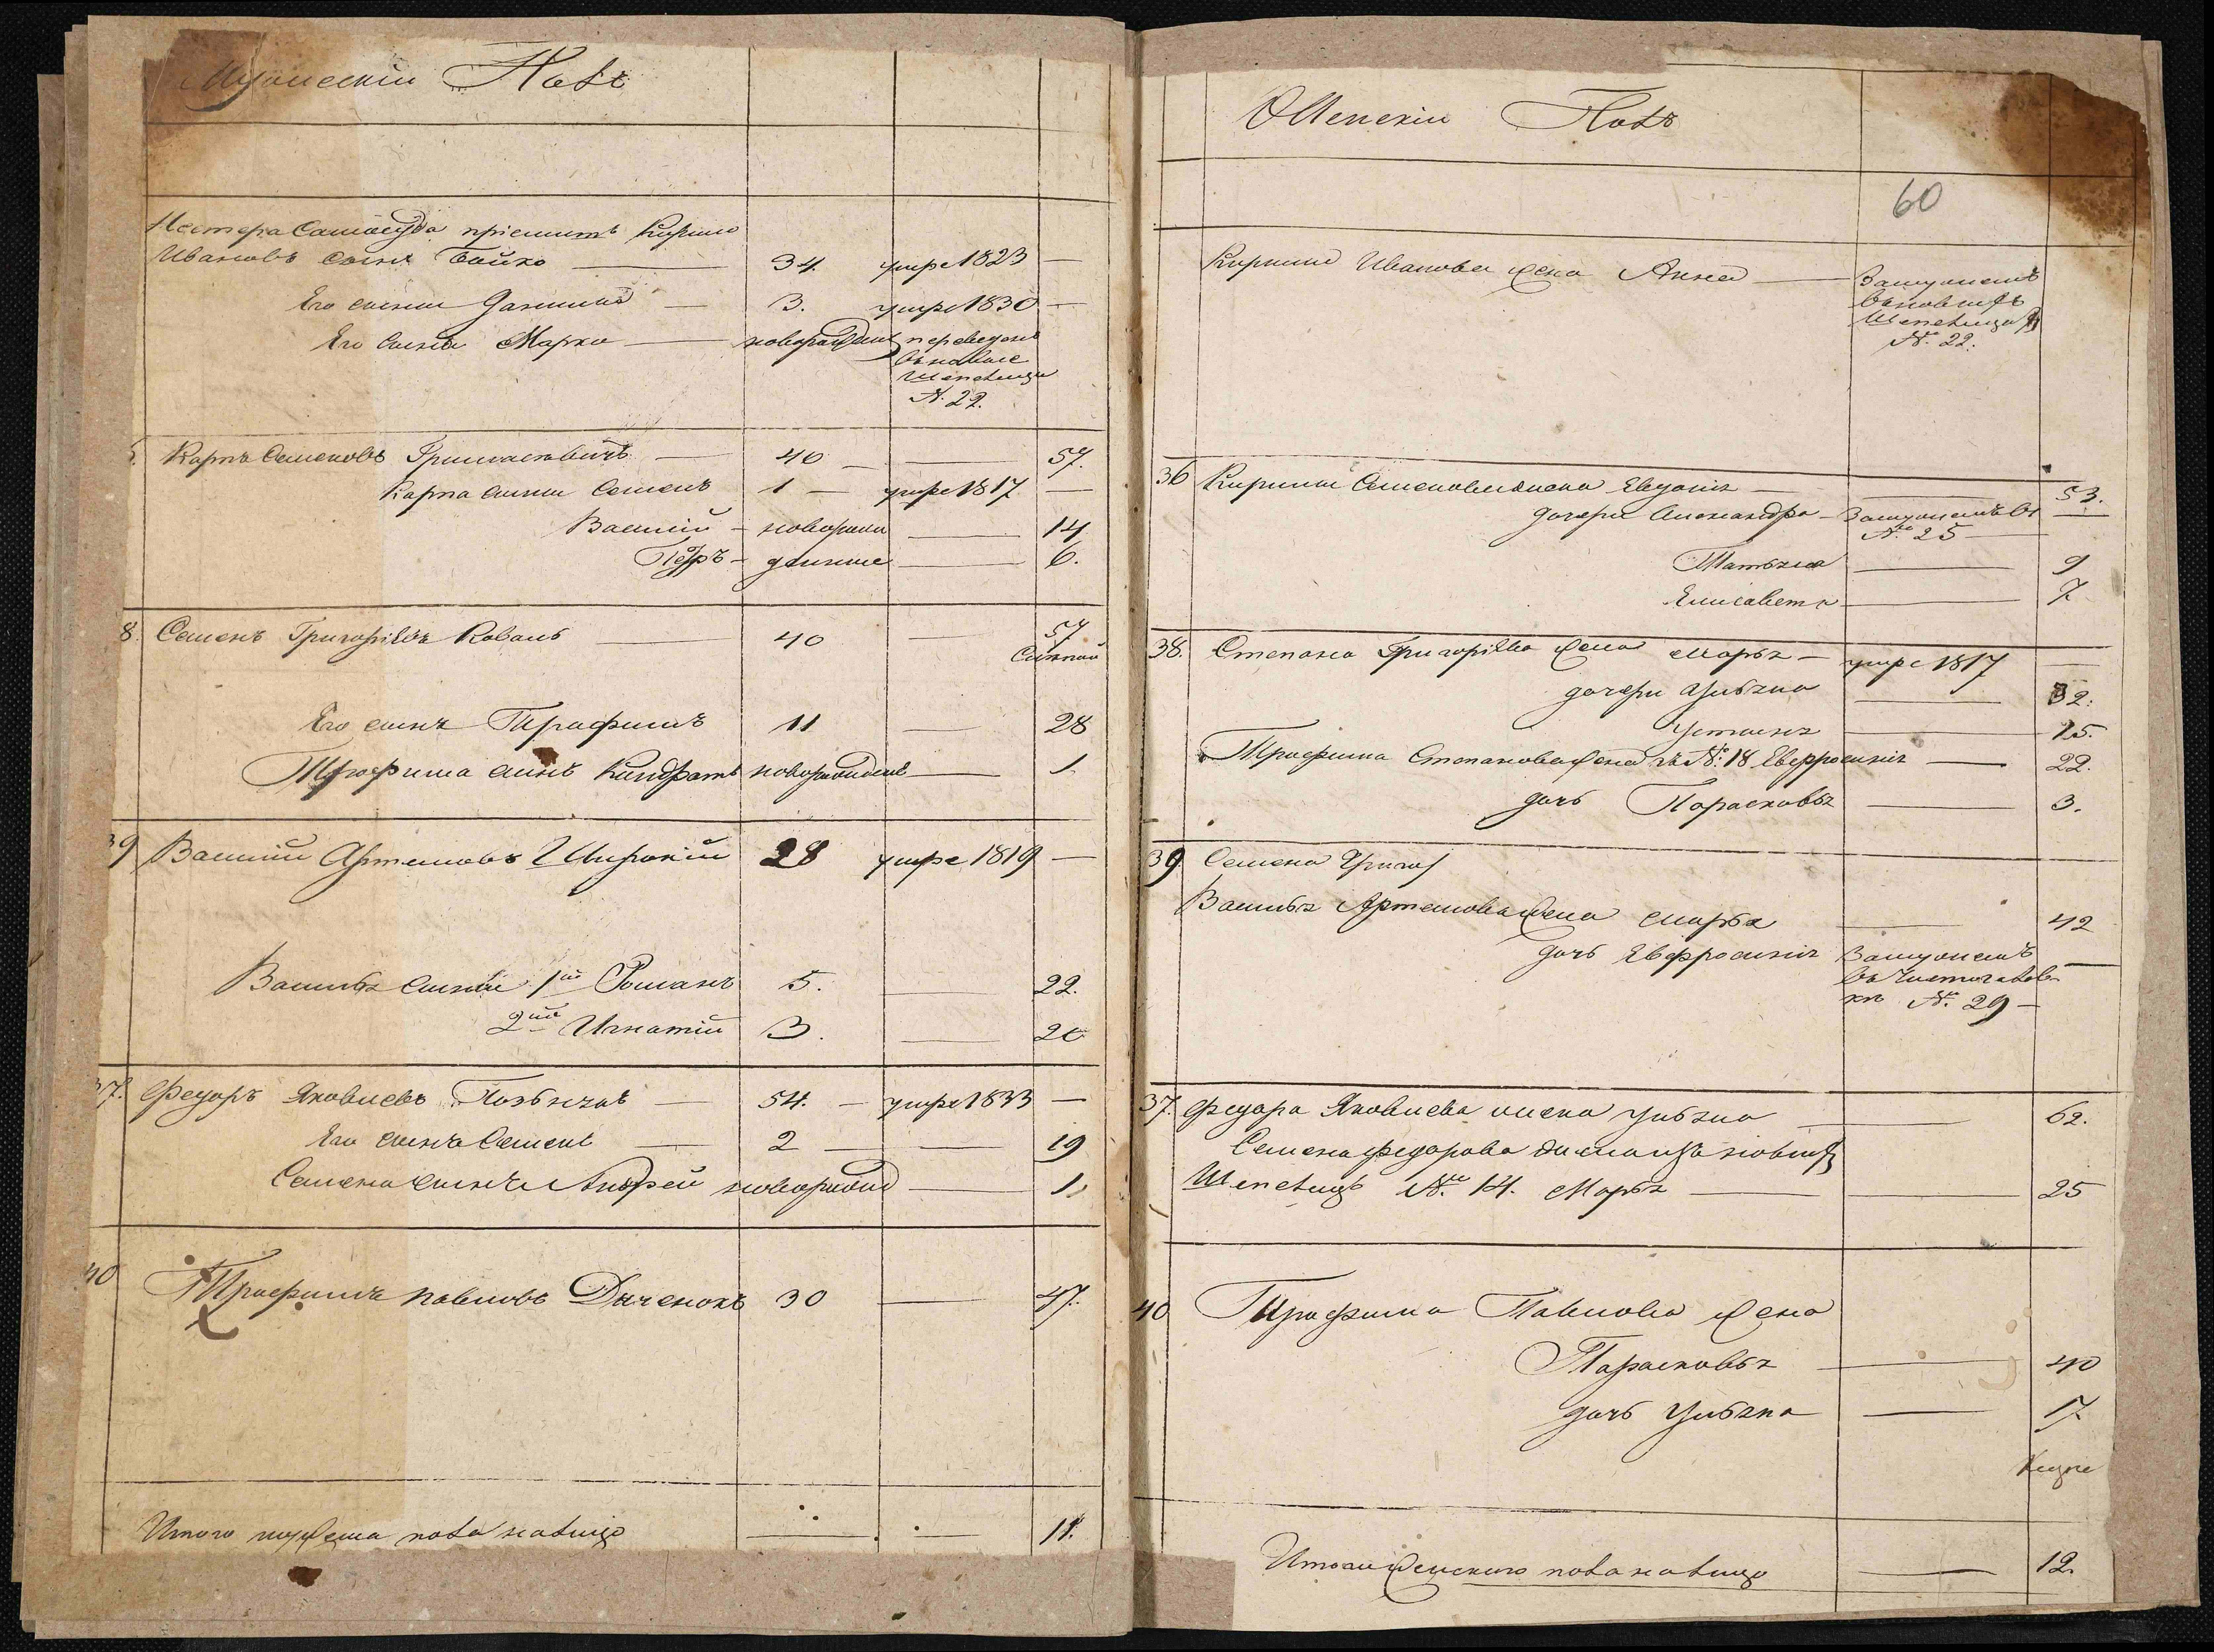 Мужескій Полъ
Нестера Самосуда пріемитъ Кирило
Ивановъ сынъ Бойко — 34. умре 1823 —
Его сынъ Данило — 3. умре 1830 —
Его сынъ Марко — новорожден переведенъ
въ новые
Шепелици
№ 22.
Карпъ Семеновъ — 40 — — 57.
Карпа сыны Семенъ 1 — умре 1817 —
Василій — новорож — 14
Петръ — денные — 6.
8. Семенъ Григоріевъ Коваль — 40 — 57
Слѣпой
Его сынъ Трофимъ 11 — 28
Трофима сынъ Киндратъ новорожденъ — 1
39 Василій Артемовъ Широкій 28 умре 1819 —
Василья сыны 1й Романъ 5. — 22.
2й Игнатій 3. — 20
37. Федоръ Яковлевъ — 54. — умре 1833 —
Его сынъ Семенъ — 2 — 19
Семена сынъ Андрей новорожд — 1
40 Трофимъ Павловъ Дяченокъ 30 — 47.
Итого мужеска пола налицо — — 11.
Женскій Полъ
60
Кирила Иванова жена Анна — Замужемъ
въ новыхъ
Шепелицахъ
№ 22.
36 Кирила Семенова жена Евдокія — 53.
дочери Александра — Замужемъ въ —
№ 25 —
Татьяна — 9
Елисавета — 7
38. Степана Григоріева жена Марья — умре 1817 —
дочери Ульяна — 32.
Устинья — 15.
Трофима Степанова жена съ №: 18 Евфросинія — 22.
дочь Парасковья — 3.
39 Семена Григор
Василья Артемова жена Марья — 42
дочь Евфросинія Замужемъ —
въ
№. 29 —
37. Федора Яковлева жена Ульяна — 62.
Семена Федорова жена изъ новыхъ
Шепелицъ №. 14. Марья — — 25
40 Трофима Павлова жена
Парасковья — 40
дочь Ульяна — 17.
Итого женского пола налицо — 12.